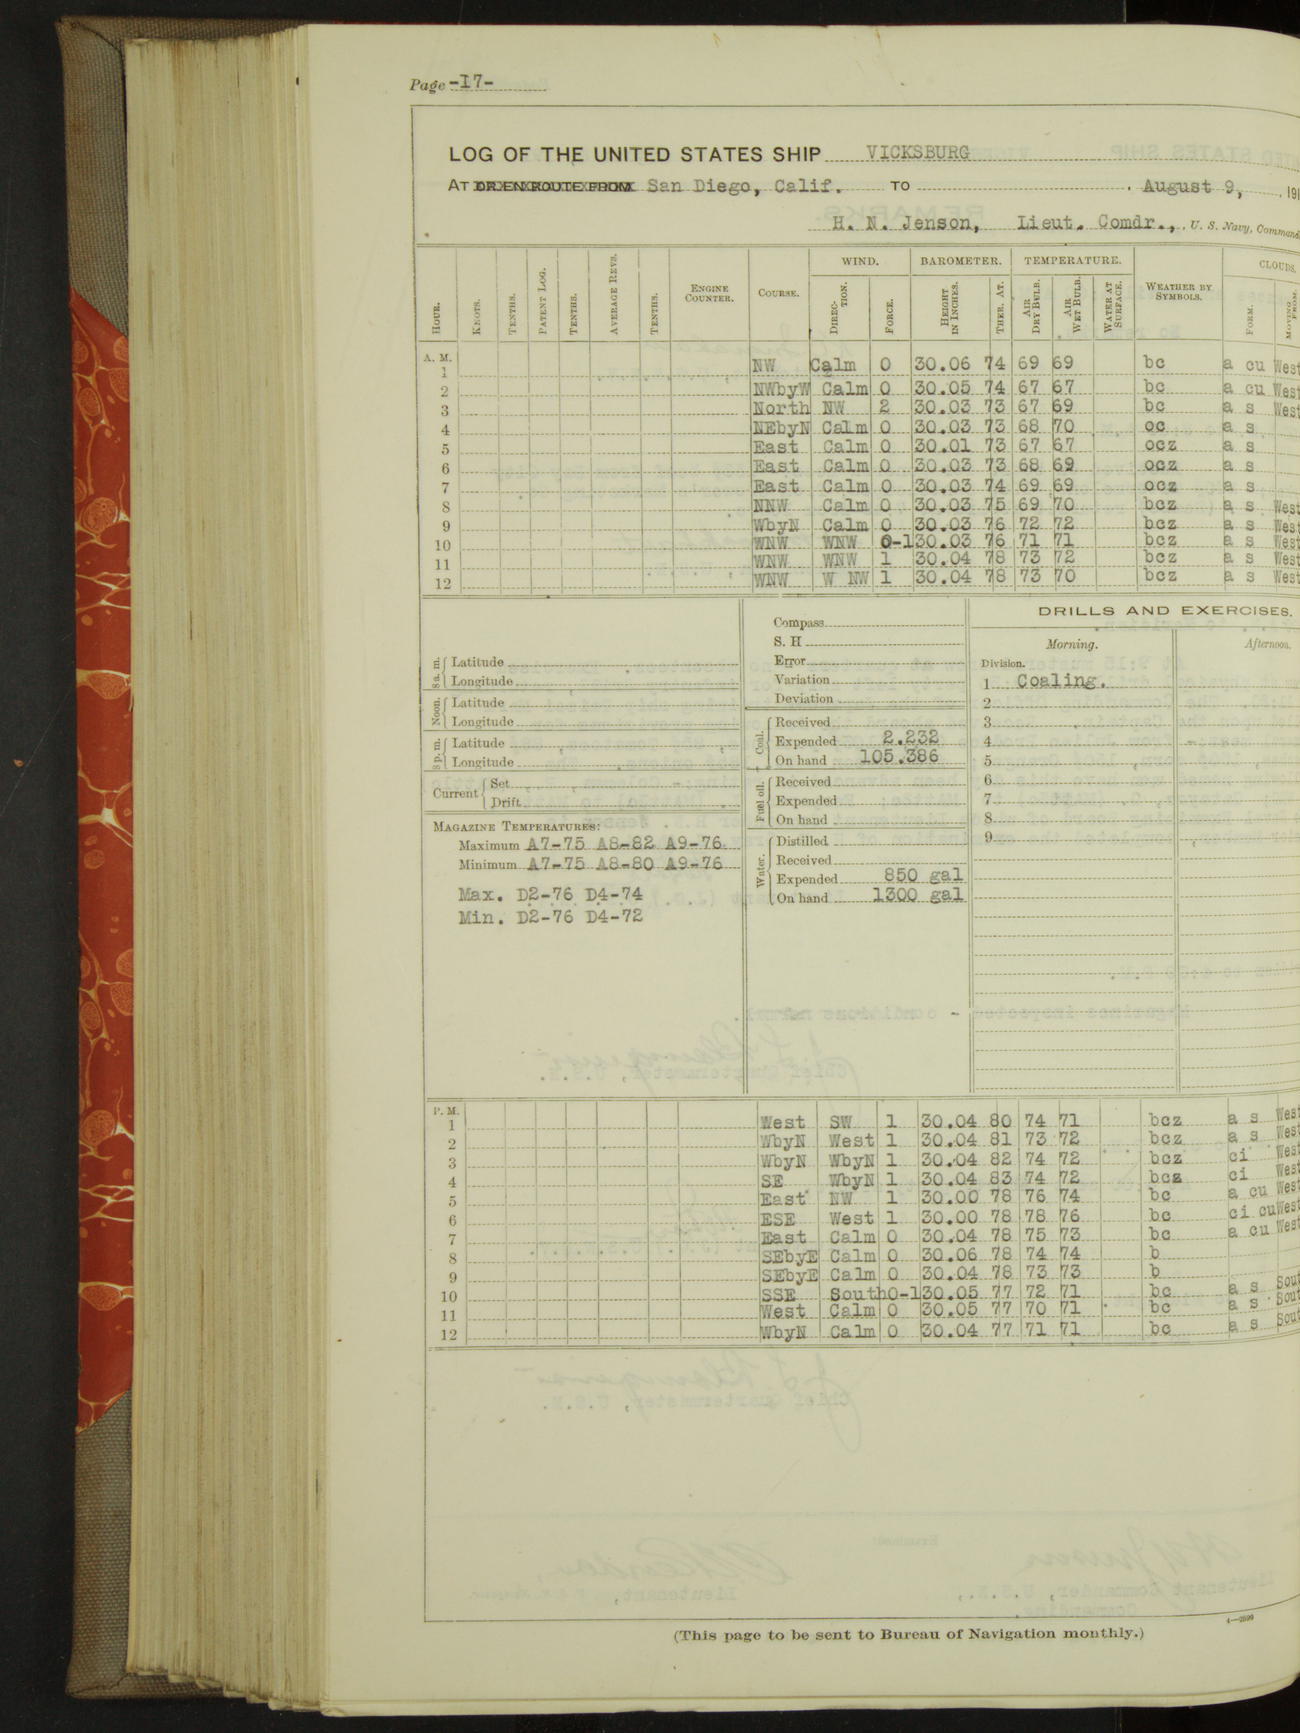 Page -17-
LOG OF THE UNITED STATES SHIP VICKSBURG
AT OR EN ROUTE FROM San Diego, Calif. TO August 9, 191
H. N. Jenson, Lieut. Comdr., U. S. Navy, Command
WIND. BAROMETER. TEMPERATURE. CLOUDS.
HOUR. KNOTS. TENTHS. PATENT LOG. TENTHS. AVERAGE REVS. TENTHS. ENGINE COUNTER. COURSE. DIRECTION. FORCE. HEIGHT IN INCHES. THER. AT. AIR DRY BULB. AIR WET BULB. WATER AT SURFACE. WEATHER BY SYMBOLS. FORM. MOVING FROM.
A. M.
1 NW Calm 0 30.06 74 69 69 bc a cu West
2 NWbyW Calm 0 30.05 74 67 67 bc a cu West
3 North NW 2 30.03 73 67 69 bc a s West
4 NEbyN Calm 0 30.03 73 68 70 oc a s
5 East Calm 0 30.01 73 67 67 ocz a s
6 East Calm 0 30.03 73 68 69 ocz a s
7 East Calm 0 30.03 74 69 69 ocz a s
8 NNW Calm 0 30.03 75 69 70 bcz a s West
9 WbyN Calm 0 30.03 76 72 72 bcz a s West
10 WNW WNW 0-1 30.03 76 71 71 bcz a s West
11 WNW WNW 1 30.04 78 73 72 bcz a s West
12 WNW W NW 1 30.04 78 73 70 bcz a s West
8 a. m. Latitude
Longitude
Noon. Latitude
Longitude
8 p. m. Latitude
Longitude
Current Set
Drift
MAGAZINE TEMPERATURES:
Maximum A7-75 A8-82 A9-76
Minimum A7-75 A8-80 A9-76
Max. D2-76 D4-74
Min. D2-76 D4-72
Compass
S. H
Error
Variation
Deviation
Coal. Received
Expended 2.232
On hand 105.386
Fuel oil. Received
Expended
On hand
Water. Distilled
Received
Expended 850 gal
On hand 1300 gal
DRILLS AND EXERCISES.
Morning. Afternoon.
Division.
1 Coaling.
2
3
4
5
6
7
8
9
P. M.
1 West SW 1 30.04 80 74 71 bcz a s West
2 WbyN West 1 30.04 81 73 72 bcz a s West
3 WbyN WbyN 1 30.04 82 74 72 bcz ci West
4 SE WbyN 1 30.04 83 74 72 bcz ci West
5 East NW 1 30.00 78 76 74 bc a cu West
6 ESE West 1 30.00 78 78 76 bc ci cu West
7 East Calm 0 30.04 78 75 73 bc a cu West
8 SEbyE Calm 0 30.06 78 74 74 b
9 SEbyE Calm 0 30.04 78 73 73 b
10 SSE South 0-1 30.05 77 72 71 bc a s Sout
11 West Calm 0 30.05 77 70 71 bc a s Sout
12 WbyN Calm 0 30.04 77 71 71 bc a s Sout
(This page to be sent to Bureau of Navigation monthly.)